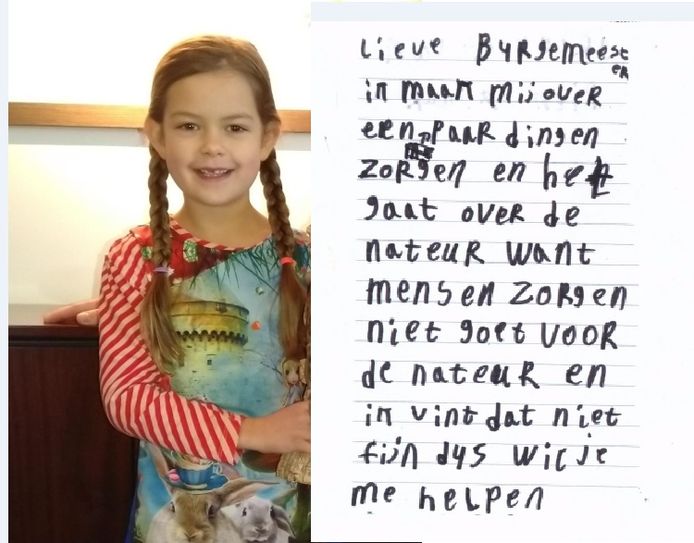 Lieve Byrgemeest
er
in maak mij over
een paar dingen
zorgen en het
gaat over de
nateur want
mensen zorgen
niet goet voor
de nateur en
in vint dat niet
fijn dys wil je
me helpen